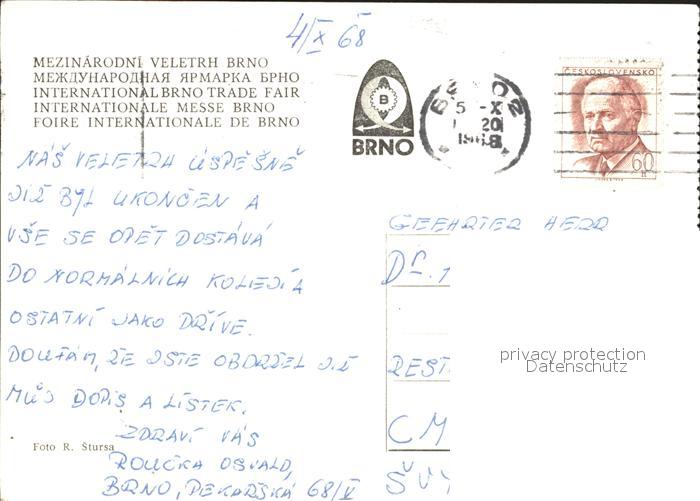 4/X 68
MEZINÁRODNÍ VELETRH BRNO
МЕЖДУНАРОДНАЯ ЯРМАРКА БРНО
INTERNATIONAL BRNO TRADE FAIR
INTERNATIONALE MESSE BRNO
FOIRE INTERNATIONALE DE BRNO
B
BRNO
5 -X
20
1968
ČESKOSLOVENSKO
60
NÁŠ VELETRH ÚSPĚŠNĚ
JIŽ BYL UKONČEN A
VŠE SE OPĚT DOSTÁVÁ
DO NORMÁLNÍCH KOLEJÍ A
OSTATNÍ JAKO DŘÍVE.
DOUFÁM, ŽE JSTE OBDRŽEL JIŽ
MŮJ DOPIS A LÍSTEK.
ZDRAVÍ VÁS
ROUČKA OSVALD,
BRNO, PEKAŘSKÁ 68/V
GEEHRTER HERR
Dr.
REST.
CM
ŠVÝ
privacy protection
Datenschutz
Foto R. Štursa